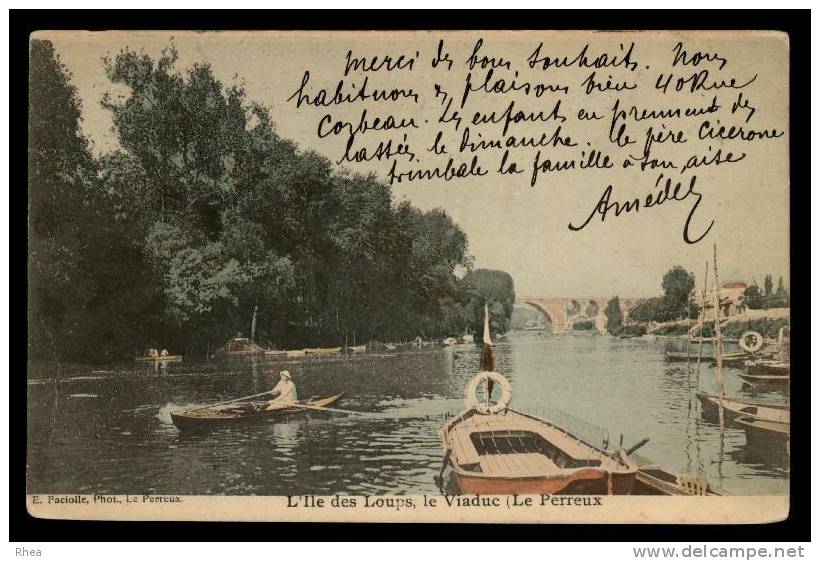 merci des bons souhaits. Nous
habituons & plaisons bien 40 Rue
Corbeau. Les enfants en prennent des
tassés, le dimanche. le père Cicerone
trimbale la famille à son aise
Amédée
E. Faciolle, Phot., Le Perreux.
L'Ile des Loups, le Viaduc (Le Perreux
Rhea
www.delcampe.net